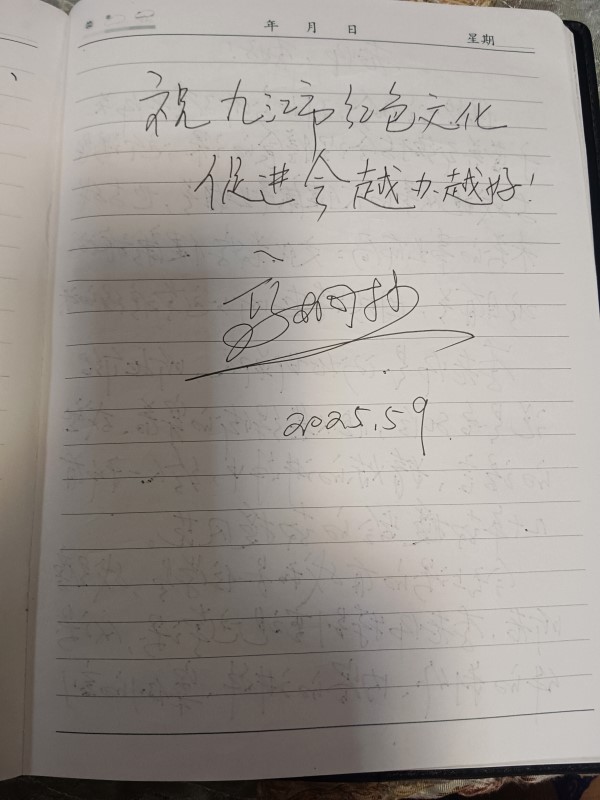 年 月 日 星期
祝九江市红色文化
促进会越办越好!
2025.5.9